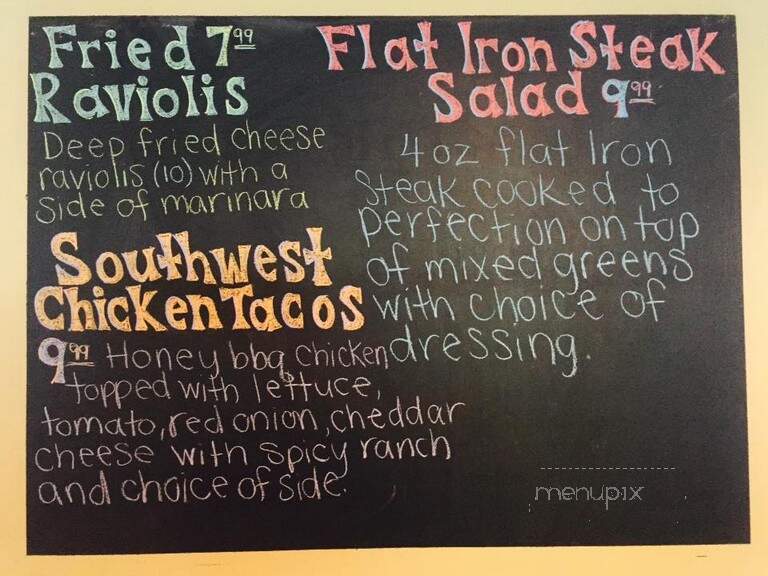 Fried 7.99
Raviolis
Deep fried cheese
raviolis (10) with a
side of marinara
Southwest
Chicken Tacos
9.99 Honey bbq chicken
topped with lettuce,
tomato, red onion, cheddar
cheese with spicy ranch
and choice of side.
Flat Iron Steak
Salad 9.99
4 oz flat Iron
Steak cooked to
perfection on top
of mixed greens
with choice of
dressing.
menupix